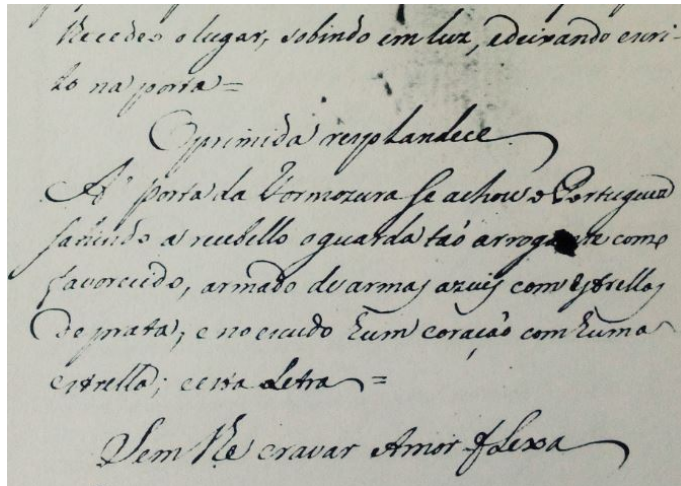 Recedeo o lugar, sobindo em luz, e deixando escri-
to na porta =
Oprimida resplandece.
A' porta da Formozura se achou o Portuguez
sahindo a recebello o guarda taõ arrogante como
favorecido, armado de armas azuis com estrellas
de prata, e no escudo hum coraçaõ com huma
estrella; e esta Letra =
Sem He cravar Amor flexa